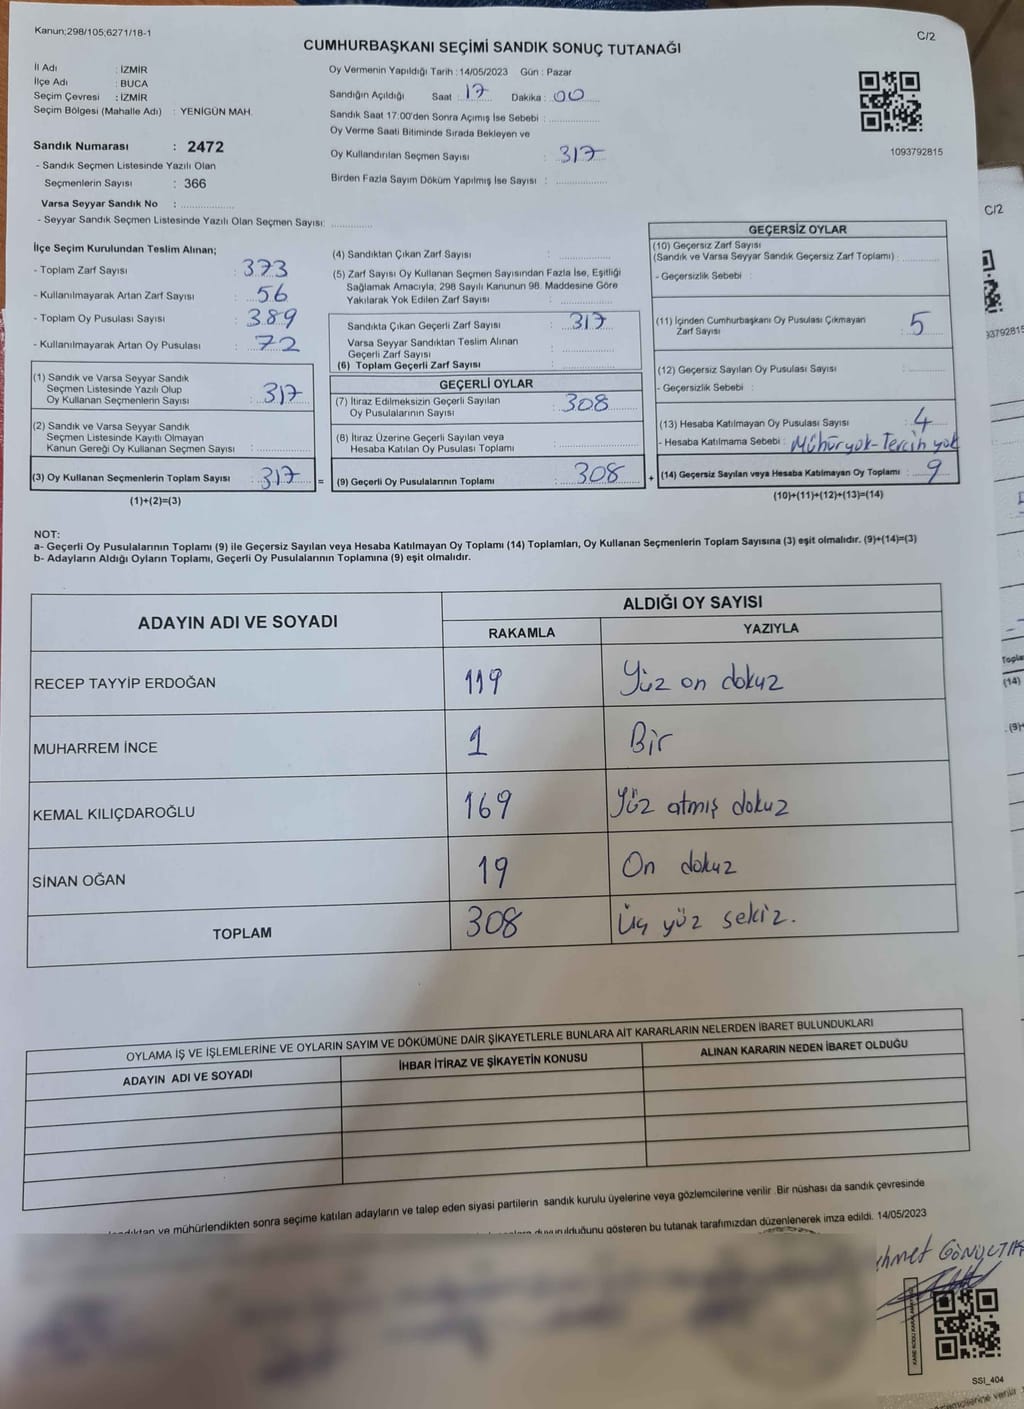 Kanun;298/105;6271/18-1
C/2
CUMHURBAŞKANI SEÇİMİ SANDIK SONUÇ TUTANAĞI
İl Adı : İZMİR
İlçe Adı : BUCA
Seçim Çevresi : İZMİR
Seçim Bölgesi (Mahalle Adı) : YENİGÜN MAH.
Sandık Numarası : 2472
- Sandık Seçmen Listesinde Yazılı Olan
Seçmenlerin Sayısı : 366
Varsa Seyyar Sandık No : ..............
- Seyyar Sandık Seçmen Listesinde Yazılı Olan Seçmen Sayısı: ..............
Oy Vermenin Yapıldığı Tarih : 14/05/2023 Gün : Pazar
Sandığın Açıldığı Saat : 17 Dakika : 00
Sandık Saat 17.00'den Sonra Açımış İse Sebebi : ..............
Oy Verme Saati Bitiminde Sırada Bekleyen ve
Oy Kullandırılan Seçmen Sayısı : 317
Birden Fazla Sayım Döküm Yapılmış İse Sayısı : ..............
1093792815
İlçe Seçim Kurulundan Teslim Alınan;
- Toplam Zarf Sayısı : 373
- Kullanılmayarak Artan Zarf Sayısı : 56
- Toplam Oy Pusulası Sayısı : 389
- Kullanılmayarak Artan Oy Pusulası : 72
(1) Sandık ve Varsa Seyyar Sandık
Seçmen Listesinde Yazılı Olup
Oy Kullanan Seçmenlerin Sayısı : 317
(2) Sandık ve Varsa Seyyar Sandık
Seçmen Listesinde Kayıtlı Olmayan
Kanun Gereği Oy Kullanan Seçmen Sayısı : ..............
(3) Oy Kullanan Seçmenlerin Toplam Sayısı : 317 =
(1)+(2)=(3)
(4) Sandıktan Çıkan Zarf Sayısı : ..............
(5) Zarf Sayısı Oy Kullanan Seçmen Sayısından Fazla İse, Eşitliği
Sağlamak Amacıyla, 298 Sayılı Kanunun 98. Maddesine Göre
Yakılarak Yok Edilen Zarf Sayısı : ..............
Sandıkta Çıkan Geçerli Zarf Sayısı : 317
Varsa Seyyar Sandıktan Teslim Alınan
Geçerli Zarf Sayısı : ..............
(6) Toplam Geçerli Zarf Sayısı : ..............
GEÇERLİ OYLAR
(7) İtiraz Edilmeksizin Geçerli Sayılan
Oy Pusulalarının Sayısı : 308
(8) İtiraz Üzerine Geçerli Sayılan veya
Hesaba Katılan Oy Pusulası Toplamı : ..............
(9) Geçerli Oy Pusulalarının Toplamı : 308 +
GEÇERSİZ OYLAR
(10) Geçersiz Zarf Sayısı
(Sandık ve Varsa Seyyar Sandık Geçersiz Zarf Toplamı) : ..............
- Geçersizlik Sebebi :
(11) İçinden Cumhurbaşkanı Oy Pusulası Çıkmayan
Zarf Sayısı : 5
(12) Geçersiz Sayılan Oy Pusulası Sayısı : ..............
- Geçersizlik Sebebi :
(13) Hesaba Katılmayan Oy Pusulası Sayısı : 4
- Hesaba Katılmama Sebebi : Mühür yok - Tercih yok
(14) Geçersiz Sayılan veya Hesaba Katılmayan Oy Toplamı : 9
(10)+(11)+(12)+(13)=(14)
NOT:
a- Geçerli Oy Pusulalarının Toplamı (9) ile Geçersiz Sayılan veya Hesaba Katılmayan Oy Toplamı (14) Toplamları, Oy Kullanan Seçmenlerin Toplam Sayısına (3) eşit olmalıdır. (9)+(14)=(3)
b- Adayların Aldığı Oyların Toplamı, Geçerli Oy Pusulalarının Toplamına (9) eşit olmalıdır.
ADAYIN ADI VE SOYADI
ALDIĞI OY SAYISI
RAKAMLA YAZIYLA
RECEP TAYYİP ERDOĞAN 119 Yüz on dokuz
MUHARREM İNCE 1 Bir
KEMAL KILIÇDAROĞLU 169 Yüz atmış dokuz
SİNAN OĞAN 19 On dokuz
TOPLAM 308 Üç yüz sekiz.
OYLAMA İŞ VE İŞLEMLERİNE VE OYLARIN SAYIM VE DÖKÜMÜNE DAİR ŞİKAYETLERLE BUNLARA AİT KARARLARIN NELERDEN İBARET BULUNDUKLARI
ADAYIN ADI VE SOYADI İHBAR İTİRAZ VE ŞİKAYETİN KONUSU ALINAN KARARIN NEDEN İBARET OLDUĞU
ve mühürlendikten sonra seçime katılan adayların ve talep eden siyasi partilerin sandık kurulu üyelerine veya gözlemcilerine verilir .Bir nüshası da sandık çevresinde
duyurulduğunu gösteren bu tutanak tarafımızdan düzenlenerek imza edildi. 14/05/2023
SSI_404
C/2